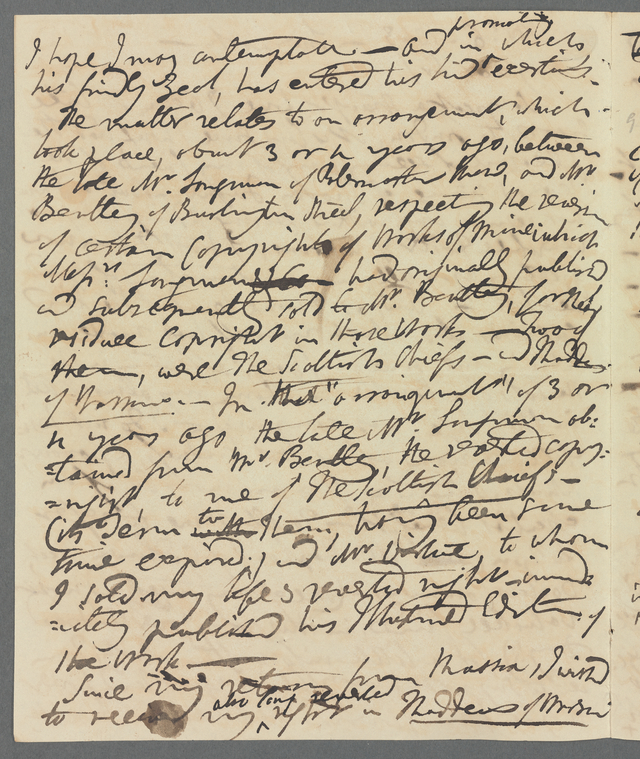 promoting
I hope I may contemplate — and in which
his friendly Zeal, has entered his kind exertions.
The matter relates to an arrangement, which
took place, about 3 or 4 years ago, between
the late Mr. Longman of Paternoster Row, and Mr
Bentley of Burlington Street, respecting the
of certain Copyrights of Works of Mine which
Messrs. Longman & Co had originally published
and subsequently sold to Mr. Bentley, for the
residue Copyright in those Works — Two of
them, were The Scottish Chiefs — and Thaddeus
of Warsaw. — In that "arrangement", of 3 or
4 years ago, the late Mr Longman ob=
=tained from Mr. Bentley, the reverted copy=
=right, to me of The Scottish Chiefs —
(its Term to them, having been some
time expired;) and Mr. Virtue, to whom
I sold my life's reverted right — immedi
=ately published his Illustrated Edition of
the work —
Since my return from Russia, I wished
also long reverted
to my right in Thaddeus of Warsaw